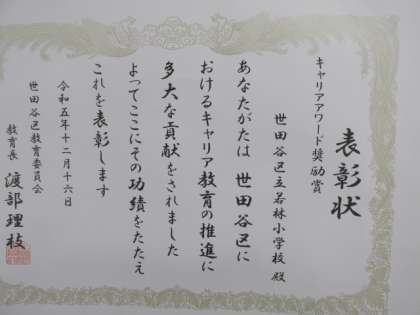 表彰状
キャリアアワード奨励賞
世田谷区立若林小学校 殿
あなたがたは 世田谷区に
おけるキャリア教育の推進に
多大な貢献をされました
よってここにその功績をたたえ
これを表彰します
令和五年十二月十六日
世田谷区教育委員会
教育長 渡部理枝